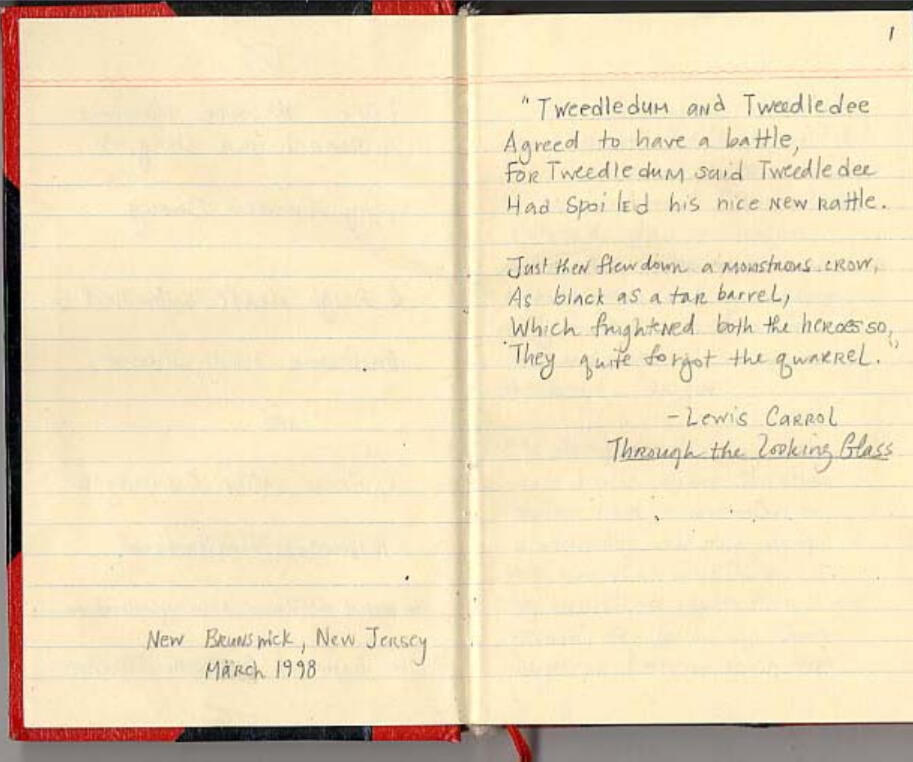 New Brunswick, New Jersey
March 1998
1
"Tweedledum and Tweedledee
Agreed to have a battle,
For Tweedledum said Tweedledee
Had spoiled his nice new rattle.
Just then flew down a monstrous crow,
As black as a tar barrel,
Which frightened both the heroes so,
They quite forgot the quarrel."
- Lewis Carrol
Through the Looking Glass